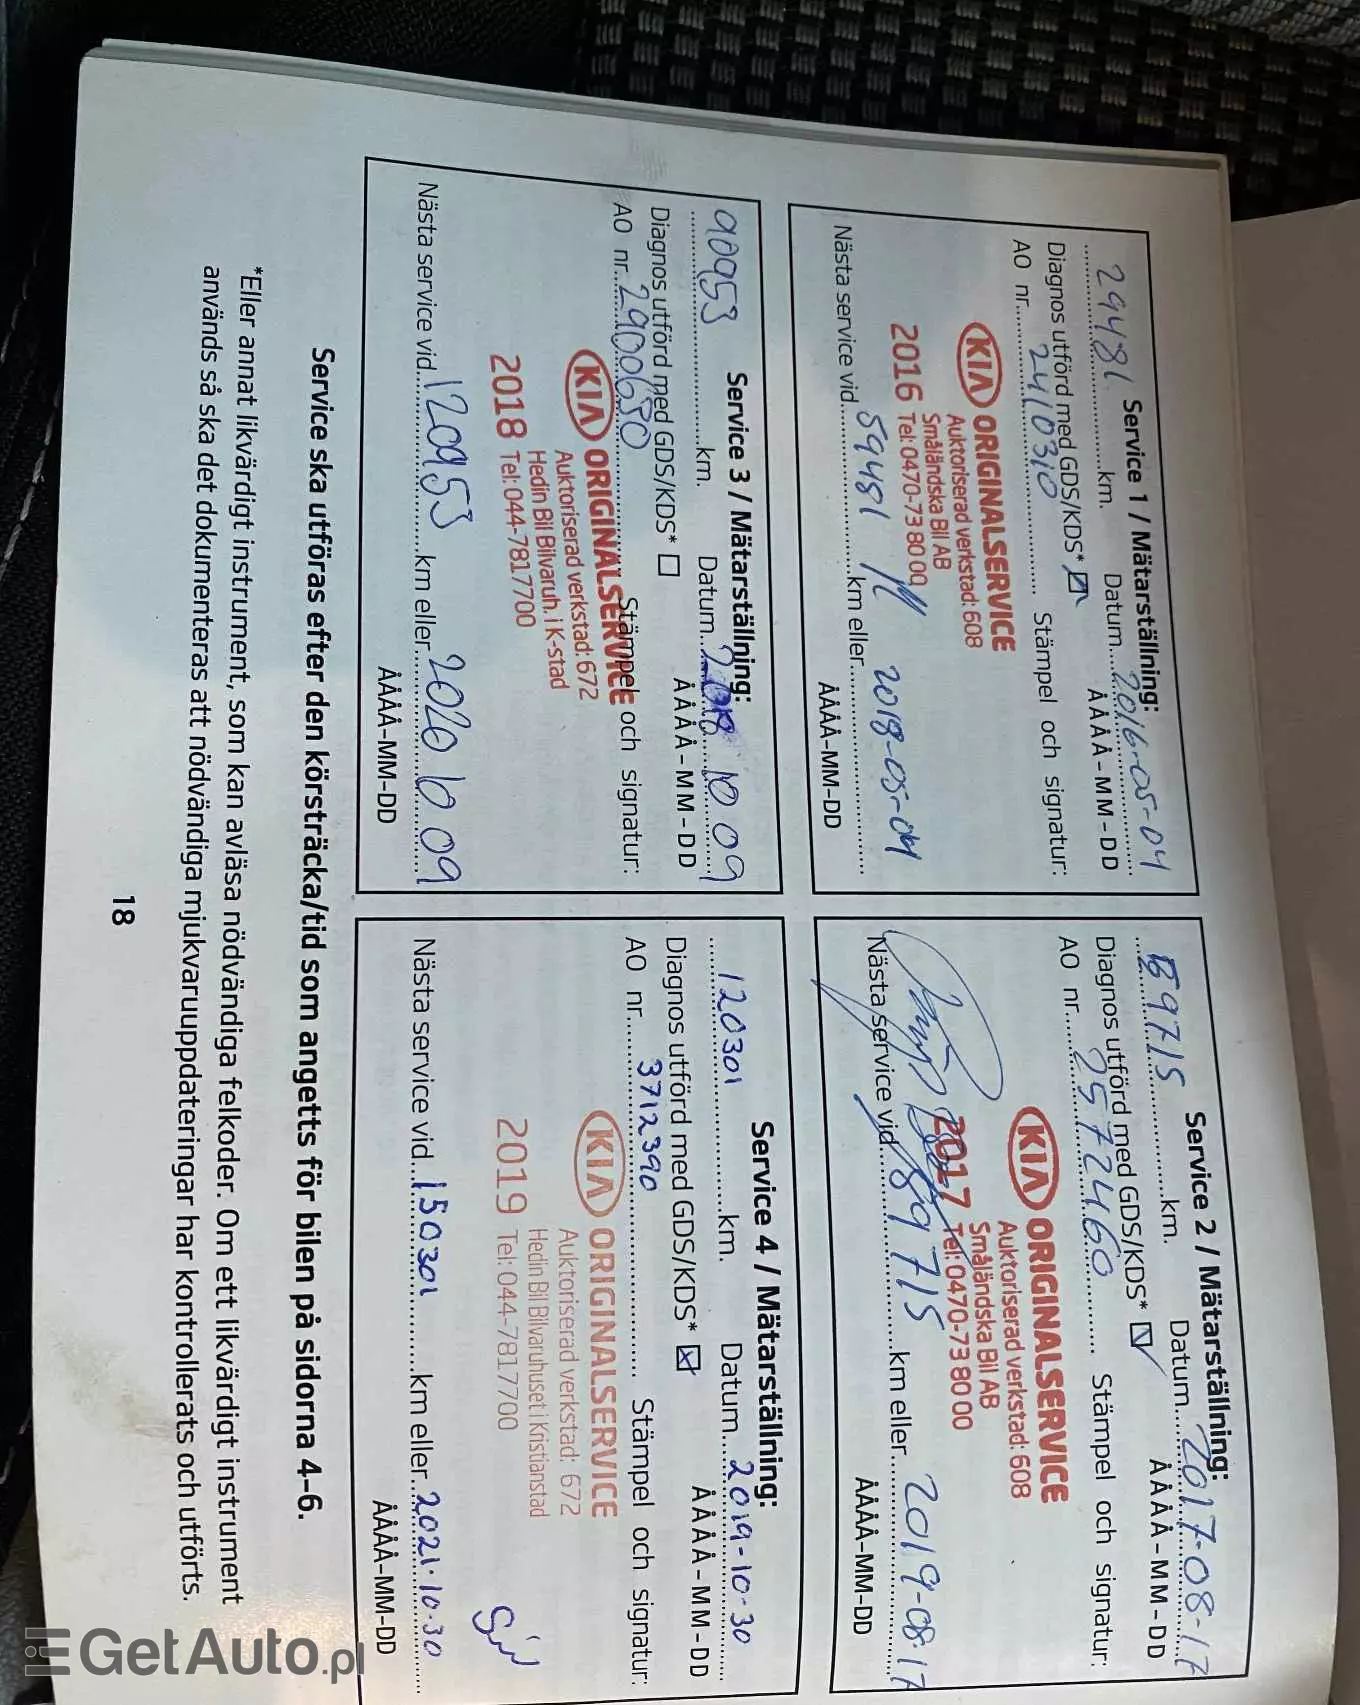 Service 1 / Mätarställning:
29481 km. Datum 2016-05-04
ÅÅÅÅ-MM-DD
Diagnos utförd med GDS/KDS*
AO nr. 2410310 Stämpel och signatur:
KIA ORIGINALSERVICE
Auktoriserad verkstad: 608
Småländska Bil AB
2016 Tel: 0470-73 80 00
Nästa service vid 59481 km eller 2018-05-04
ÅÅÅÅ-MM-DD
Service 2 / Mätarställning:
59715 km. Datum 2017-08-17
ÅÅÅÅ-MM-DD
Diagnos utförd med GDS/KDS*
AO nr. 2572460 Stämpel och signatur:
KIA ORIGINALSERVICE
Auktoriserad verkstad: 608
Småländska Bil AB
2017 Tel: 0470-73 80 00
Nästa service vid 89715 km eller 2019-08-17
ÅÅÅÅ-MM-DD
Service 3 / Mätarställning:
90953 km. Datum 2018 10 09
ÅÅÅÅ-MM-DD
Diagnos utförd med GDS/KDS*
AO nr. 2900680 Stämpel och signatur:
KIA ORIGINALSERVICE
Auktoriserad verkstad: 672
Hedin Bil Bilvaruh. i K-stad
2018 Tel: 044-7817700
Nästa service vid 120953 km eller 2020 10 09
ÅÅÅÅ-MM-DD
Service 4 / Mätarställning:
120301 km. Datum 2019-10-30
ÅÅÅÅ-MM-DD
Diagnos utförd med GDS/KDS*
AO nr. 3712390 Stämpel och signatur:
KIA ORIGINALSERVICE
Auktoriserad verkstad: 672
Hedin Bil Bilvaruhuset i Kristianstad
2019 Tel: 044-7817700
Nästa service vid 150301 km eller 2021-10-30
ÅÅÅÅ-MM-DD
Service ska utföras efter den körsträcka/tid som angetts för bilen på sidorna 4–6.
*Eller annat likvärdigt instrument, som kan avläsa nödvändiga felkoder. Om ett likvärdigt instrument
används så ska det dokumenteras att nödvändiga mjukvaruuppdateringar har kontrollerats och utförts.
18
GetAuto.pl